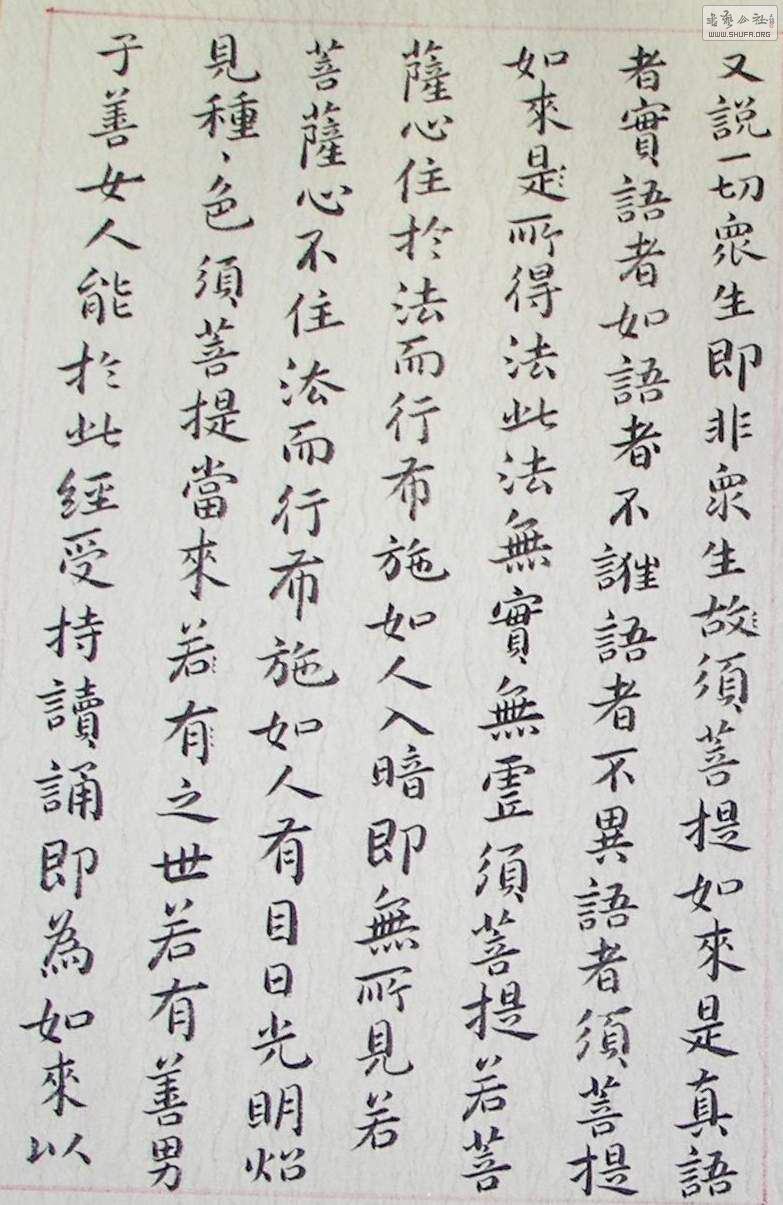 书艺公社
WWW.SHUFA.ORG
又說一切眾生即非眾生故須菩提如來是真語
者實語者如語者不誑語者不異語者須菩提
如來是所得法此法無實無虛須菩提若菩
薩心住於法而行布施如人入暗即無所見若
菩薩心不住法而行布施如人有目日光明炤
見種、色須菩提當來若有之世若有善男
子善女人能於此經受持讀誦即為如來以